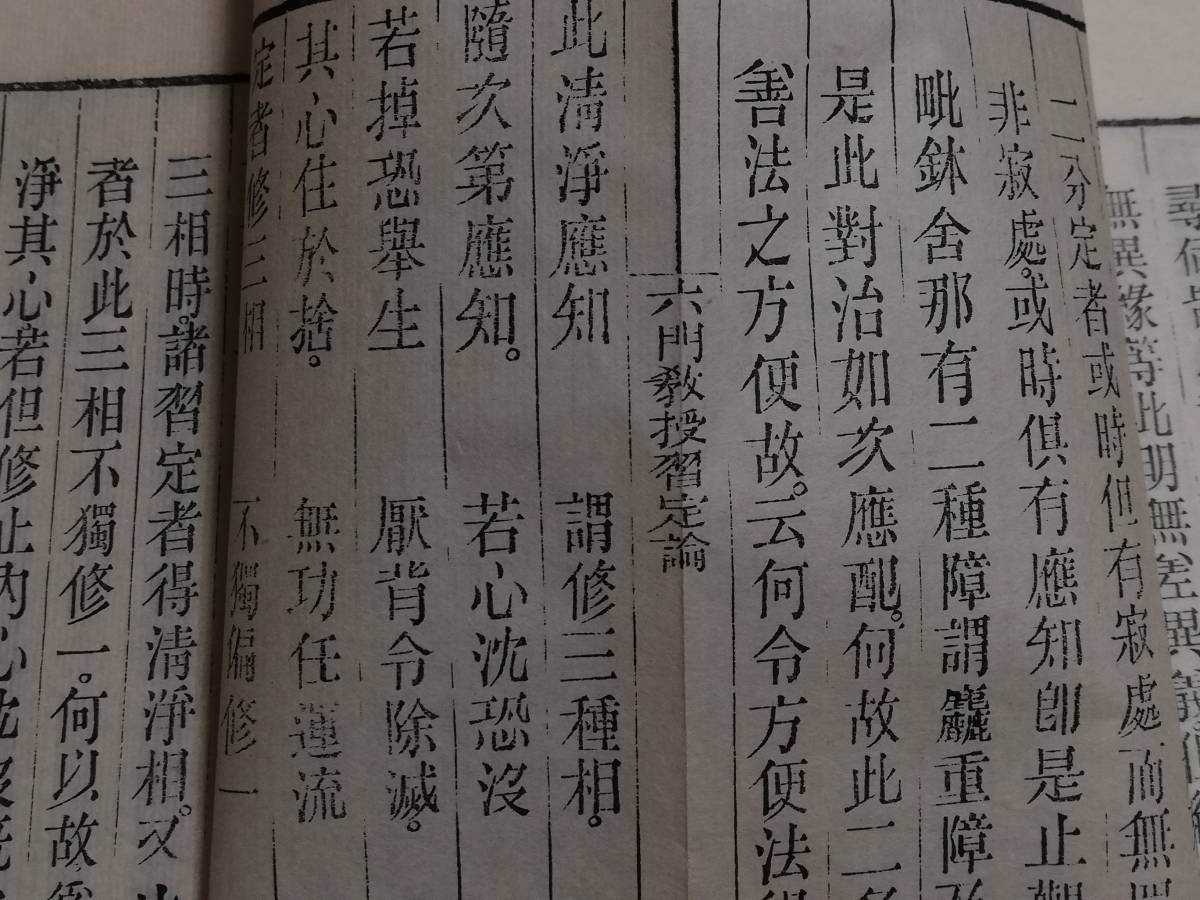 無異緣等此明無差異義
二分定者或時但有寂處而無
非寂處。或時俱有應知即是止觀
毗鉢舍那有二種障謂麤重障
是此對治如次應配。何故此二
善法之方便故。云何令方便法
六門教授習定論
此清淨應知 謂修三種相。
隨次第應知。 若心沈恐沒
若掉恐舉生 厭背令除滅。
其心住於捨。 無功任運流
定者修三相 不獨偏修一
三相時。諸習定者得清淨相。又
者於此三相不獨修一。何以故
淨其心若但修止內心沈